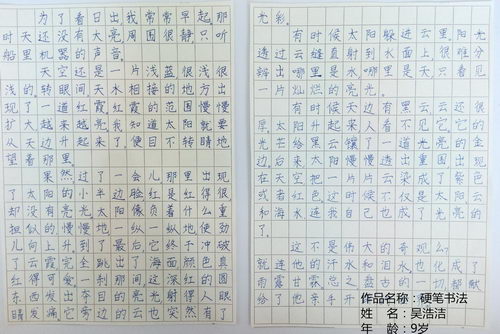 为了看日出,我常常早起。那
时天还没有大亮,周围很静,只听
船里机器的声音。
天空还是一片浅蓝,很浅很
浅的。转眼间,天水相接的地方出
现了一道红霞。红霞的范围慢慢
扩大,越来越亮。我知道太阳就要
从天边升起来了,便目不转睛地
望着那里。
果然,过了一会儿,那里出现
了太阳的小半边脸,红是红得很,
却没有亮光。太阳像负着什么重
担似的,慢慢地一纵一纵地,使劲
儿向上升。到了最后,它终于冲破
了云霞,完全跳出了海面,颜色真
红得可爱。一刹那间,这深红的圆
东西发出夺目的亮光,射得人眼
睛发痛。它旁边的云也突然有了
光彩。
有时候太阳躲进云里,阳光
透过云缝直射到水面上,很难分
辨出哪里是水,哪里是天,只看见
一片灿烂的亮光。
有时候天边有黑云,云还很
厚。太阳升起来,人看不见它。它的
光芒给黑云镶了一道光亮的金
边。后来,太阳慢慢透出重围,出现
在天空,把一片片云染成了紫色
或者红色。这时候,不仅是太阳、云
和海水,连我自己也成了光亮的
了。
这不是伟大的奇观么?
就连他的汗水和泪水,也化成了
雨露甘霖。总之,盘古的一切都献
给了他亲手开
作品名称:硬笔书法
姓 名:吴浩洁
年 龄:9岁